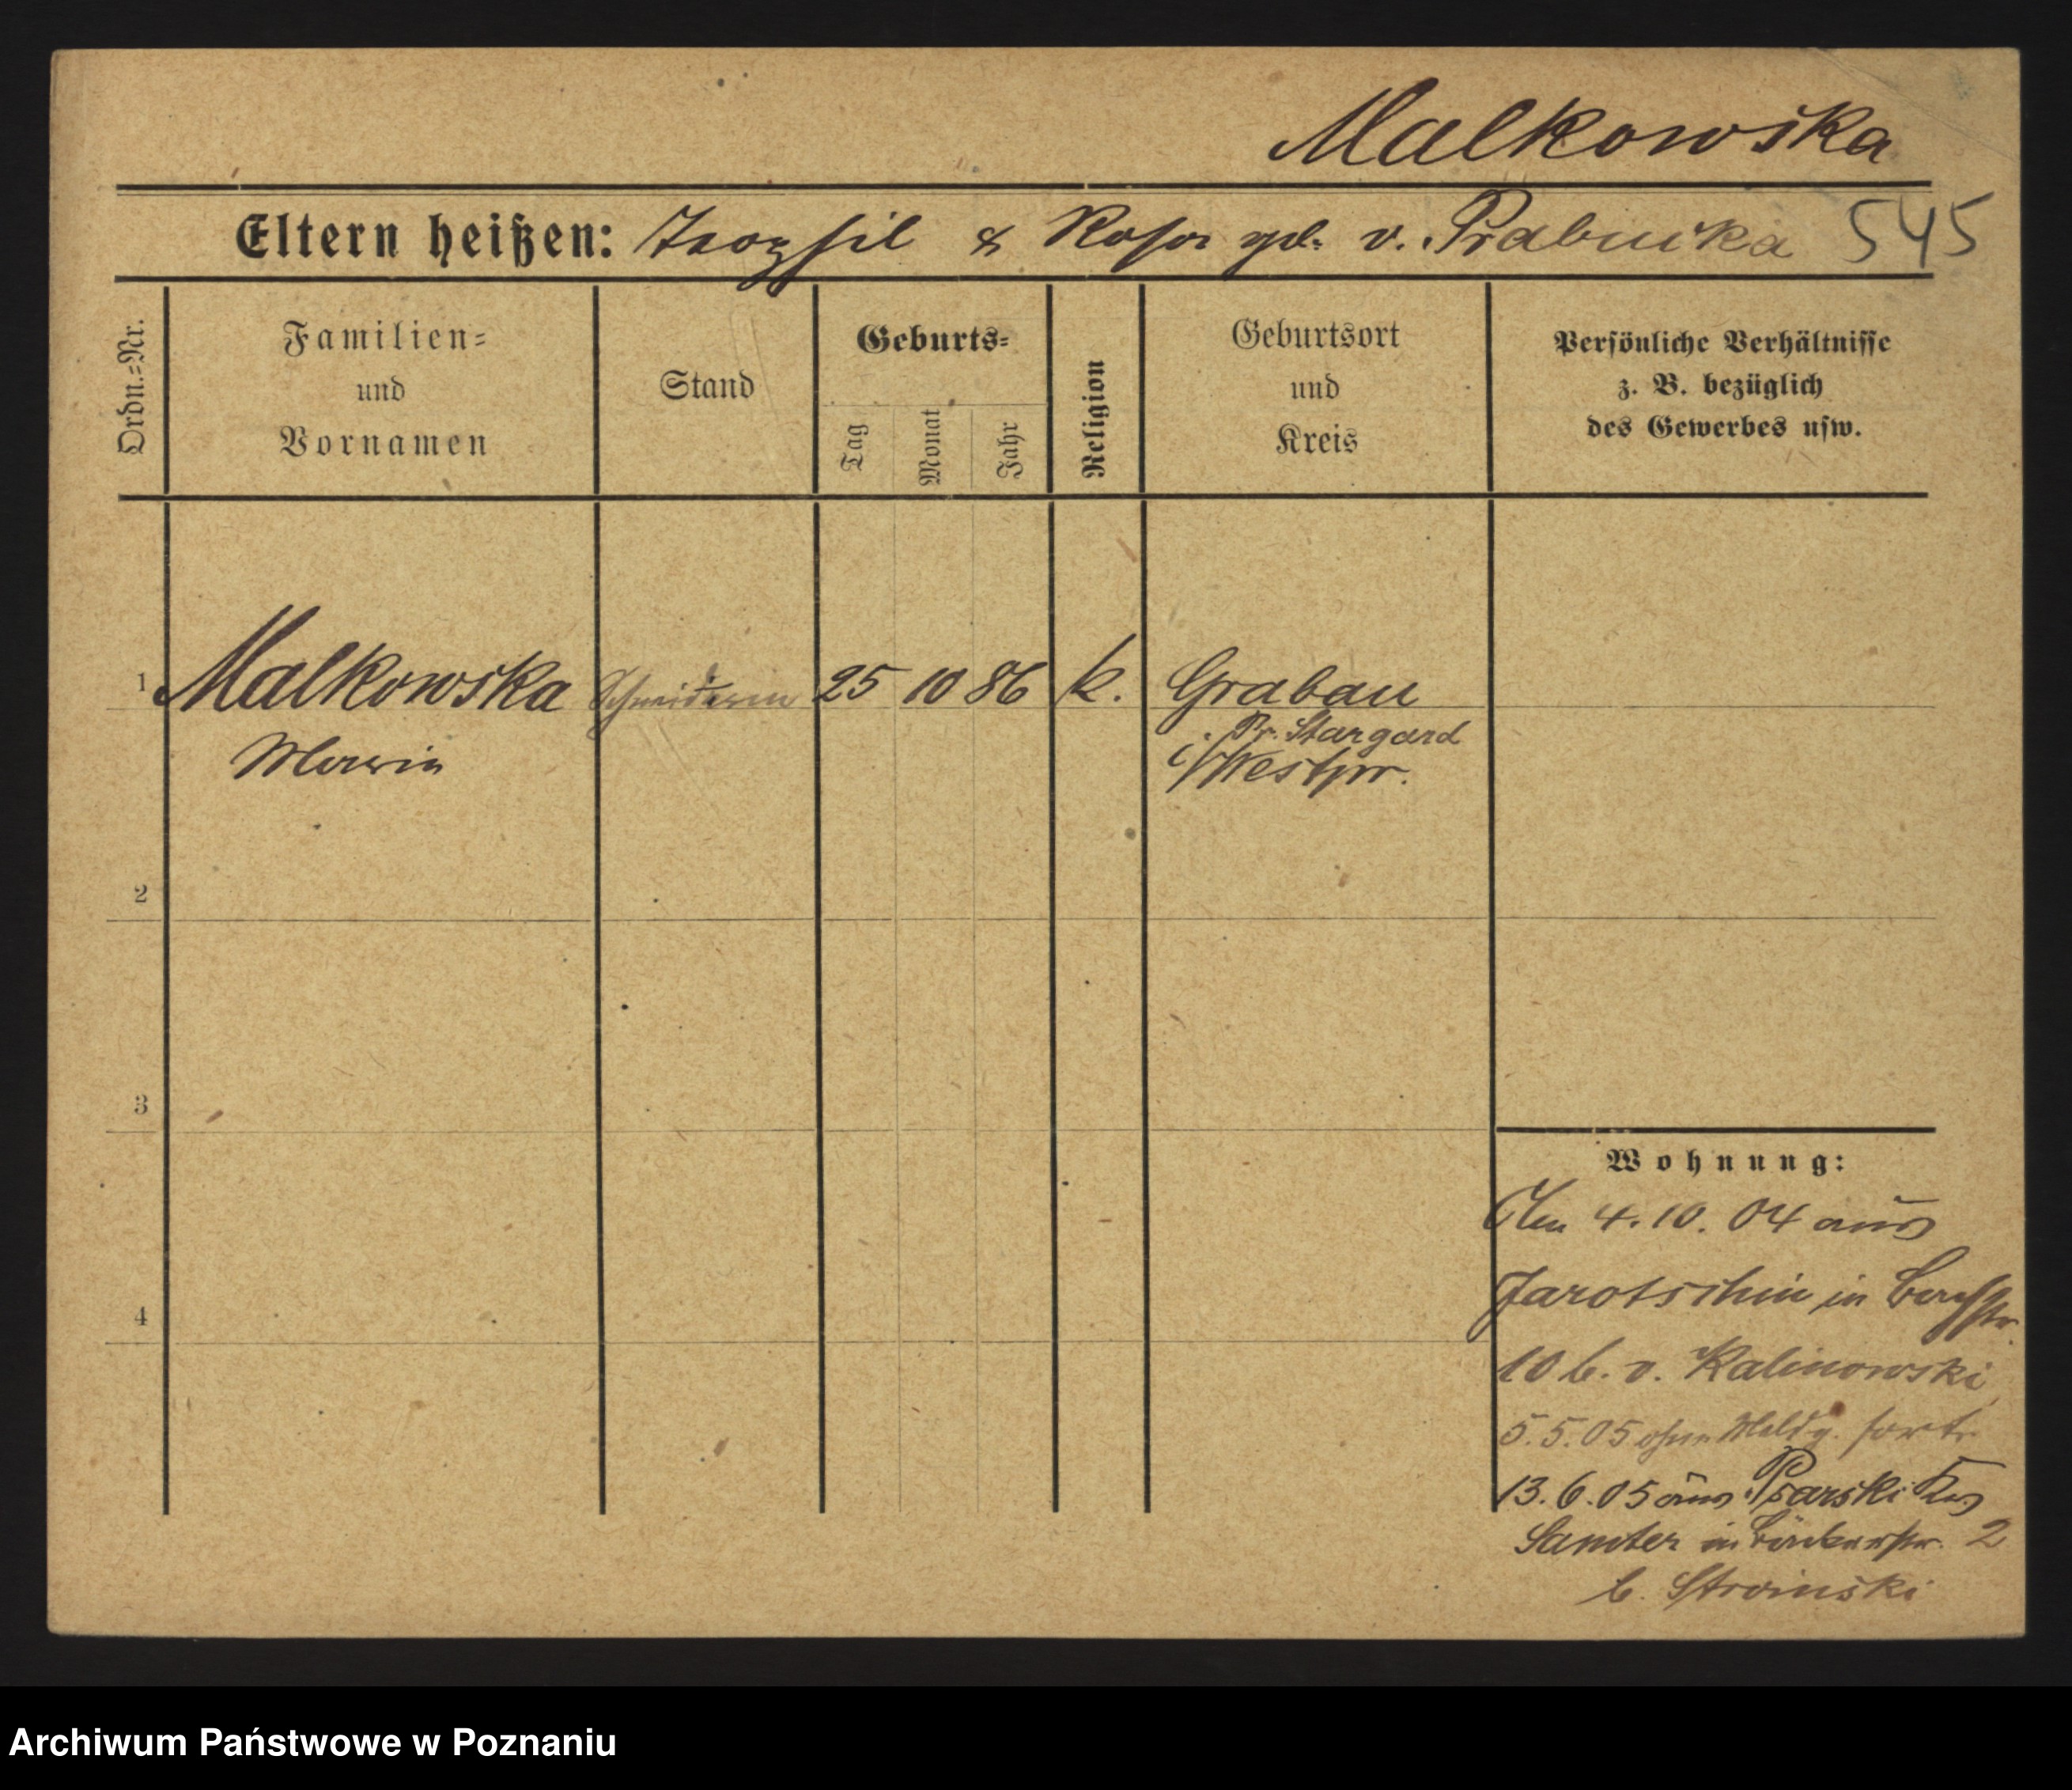 Malkowska
Eltern heißen: & Rosa geb. v. Prabucka 545
Ordn.=Nr.
Familien=
und
Vornamen
Stand
Geburts=
Tag
Monat
Jahr
Religion
Geburtsort
und
Kreis
Persönliche Verhältnisse
z. B. bezüglich
des Gewerbes usw.
1 Malkowska Schneiderin 25 10 86 k. Grabau
Pr. Stargard
Maria
i/Westpr.
2
3
4
Wohnung:
4. 10. 04 aus
Jarotschin in Bergstr.
10 b. v. Kalinowski
5. 5. 05 ohne Meldg. fort.
13. 6. 05 aus Psarski Krs
Samter in 2
b. Stroinski
Archiwum Państwowe w Poznaniu